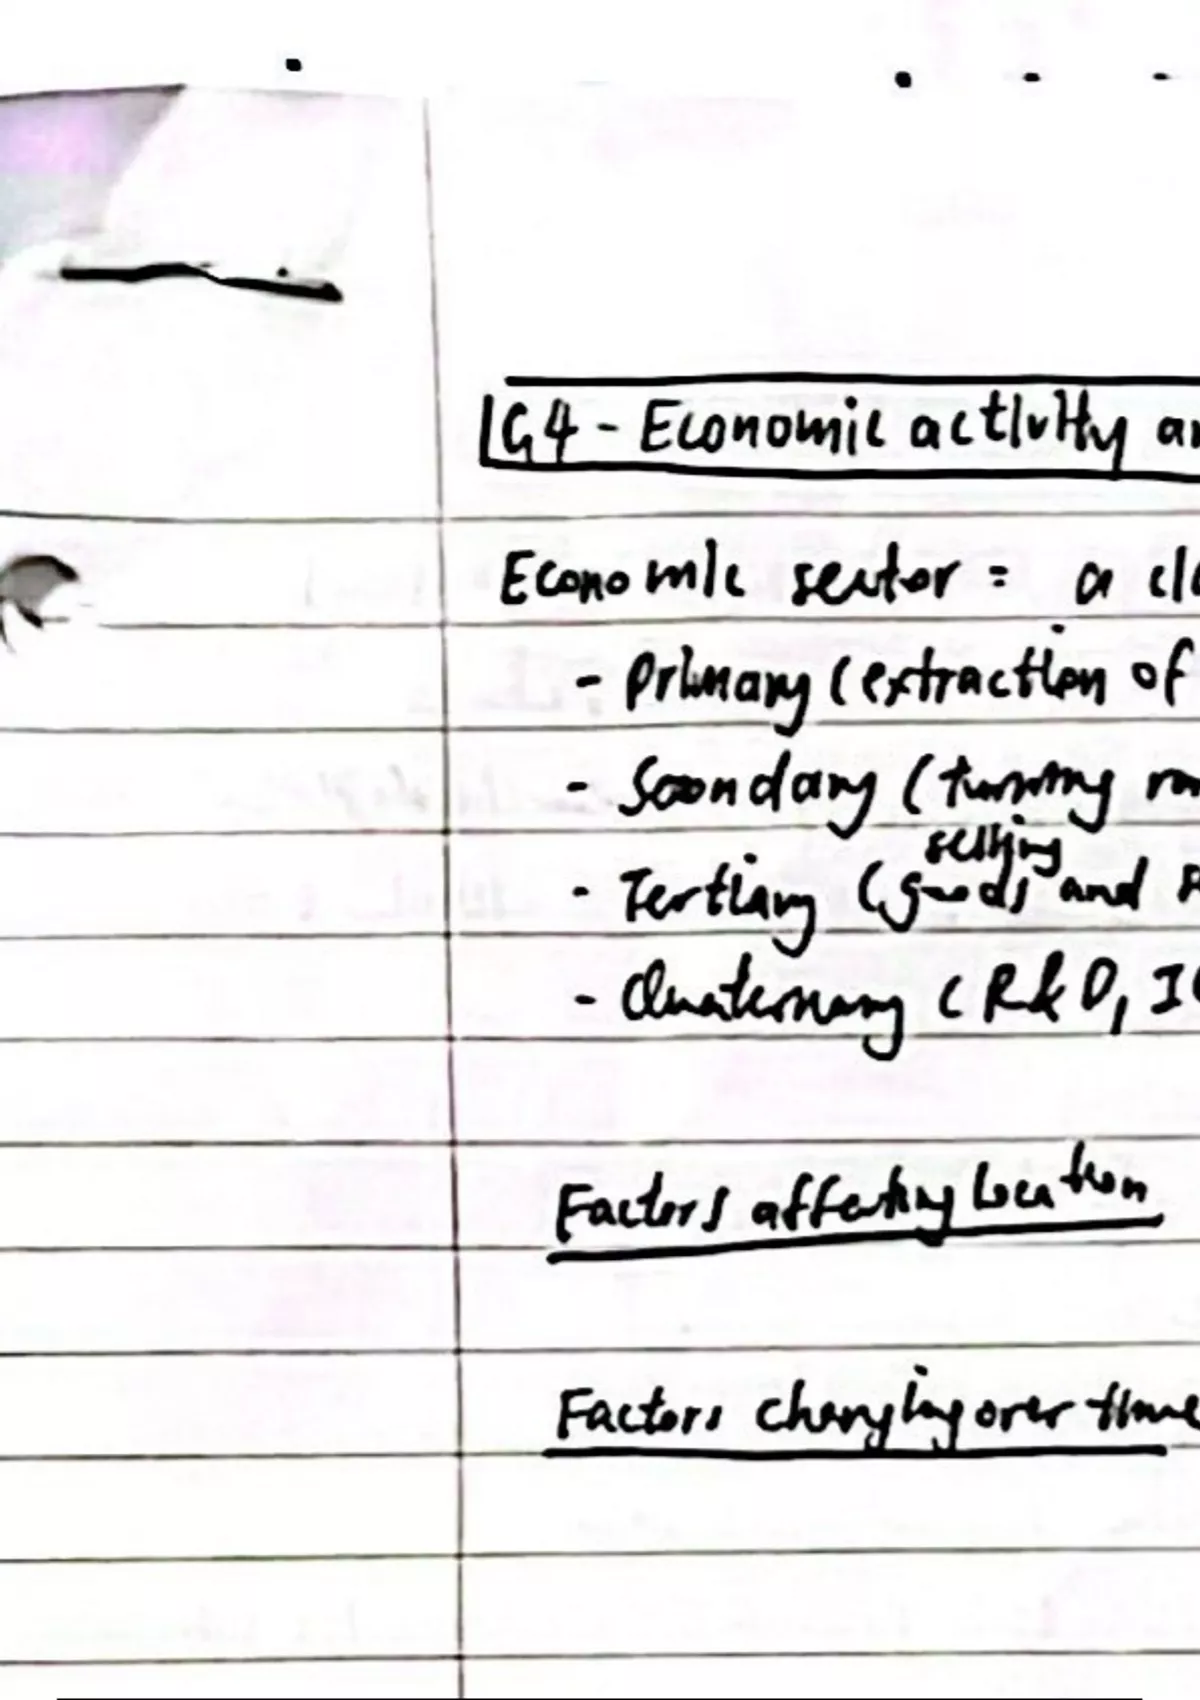 G4 - Economic activity an
Economic sector = a cla
- Primary (extraction of
- Secondary (turning raw
selling
- Tertiary (goods and s
- Quaternary (R&D, IC
Factors affecting location
Factors changing over time